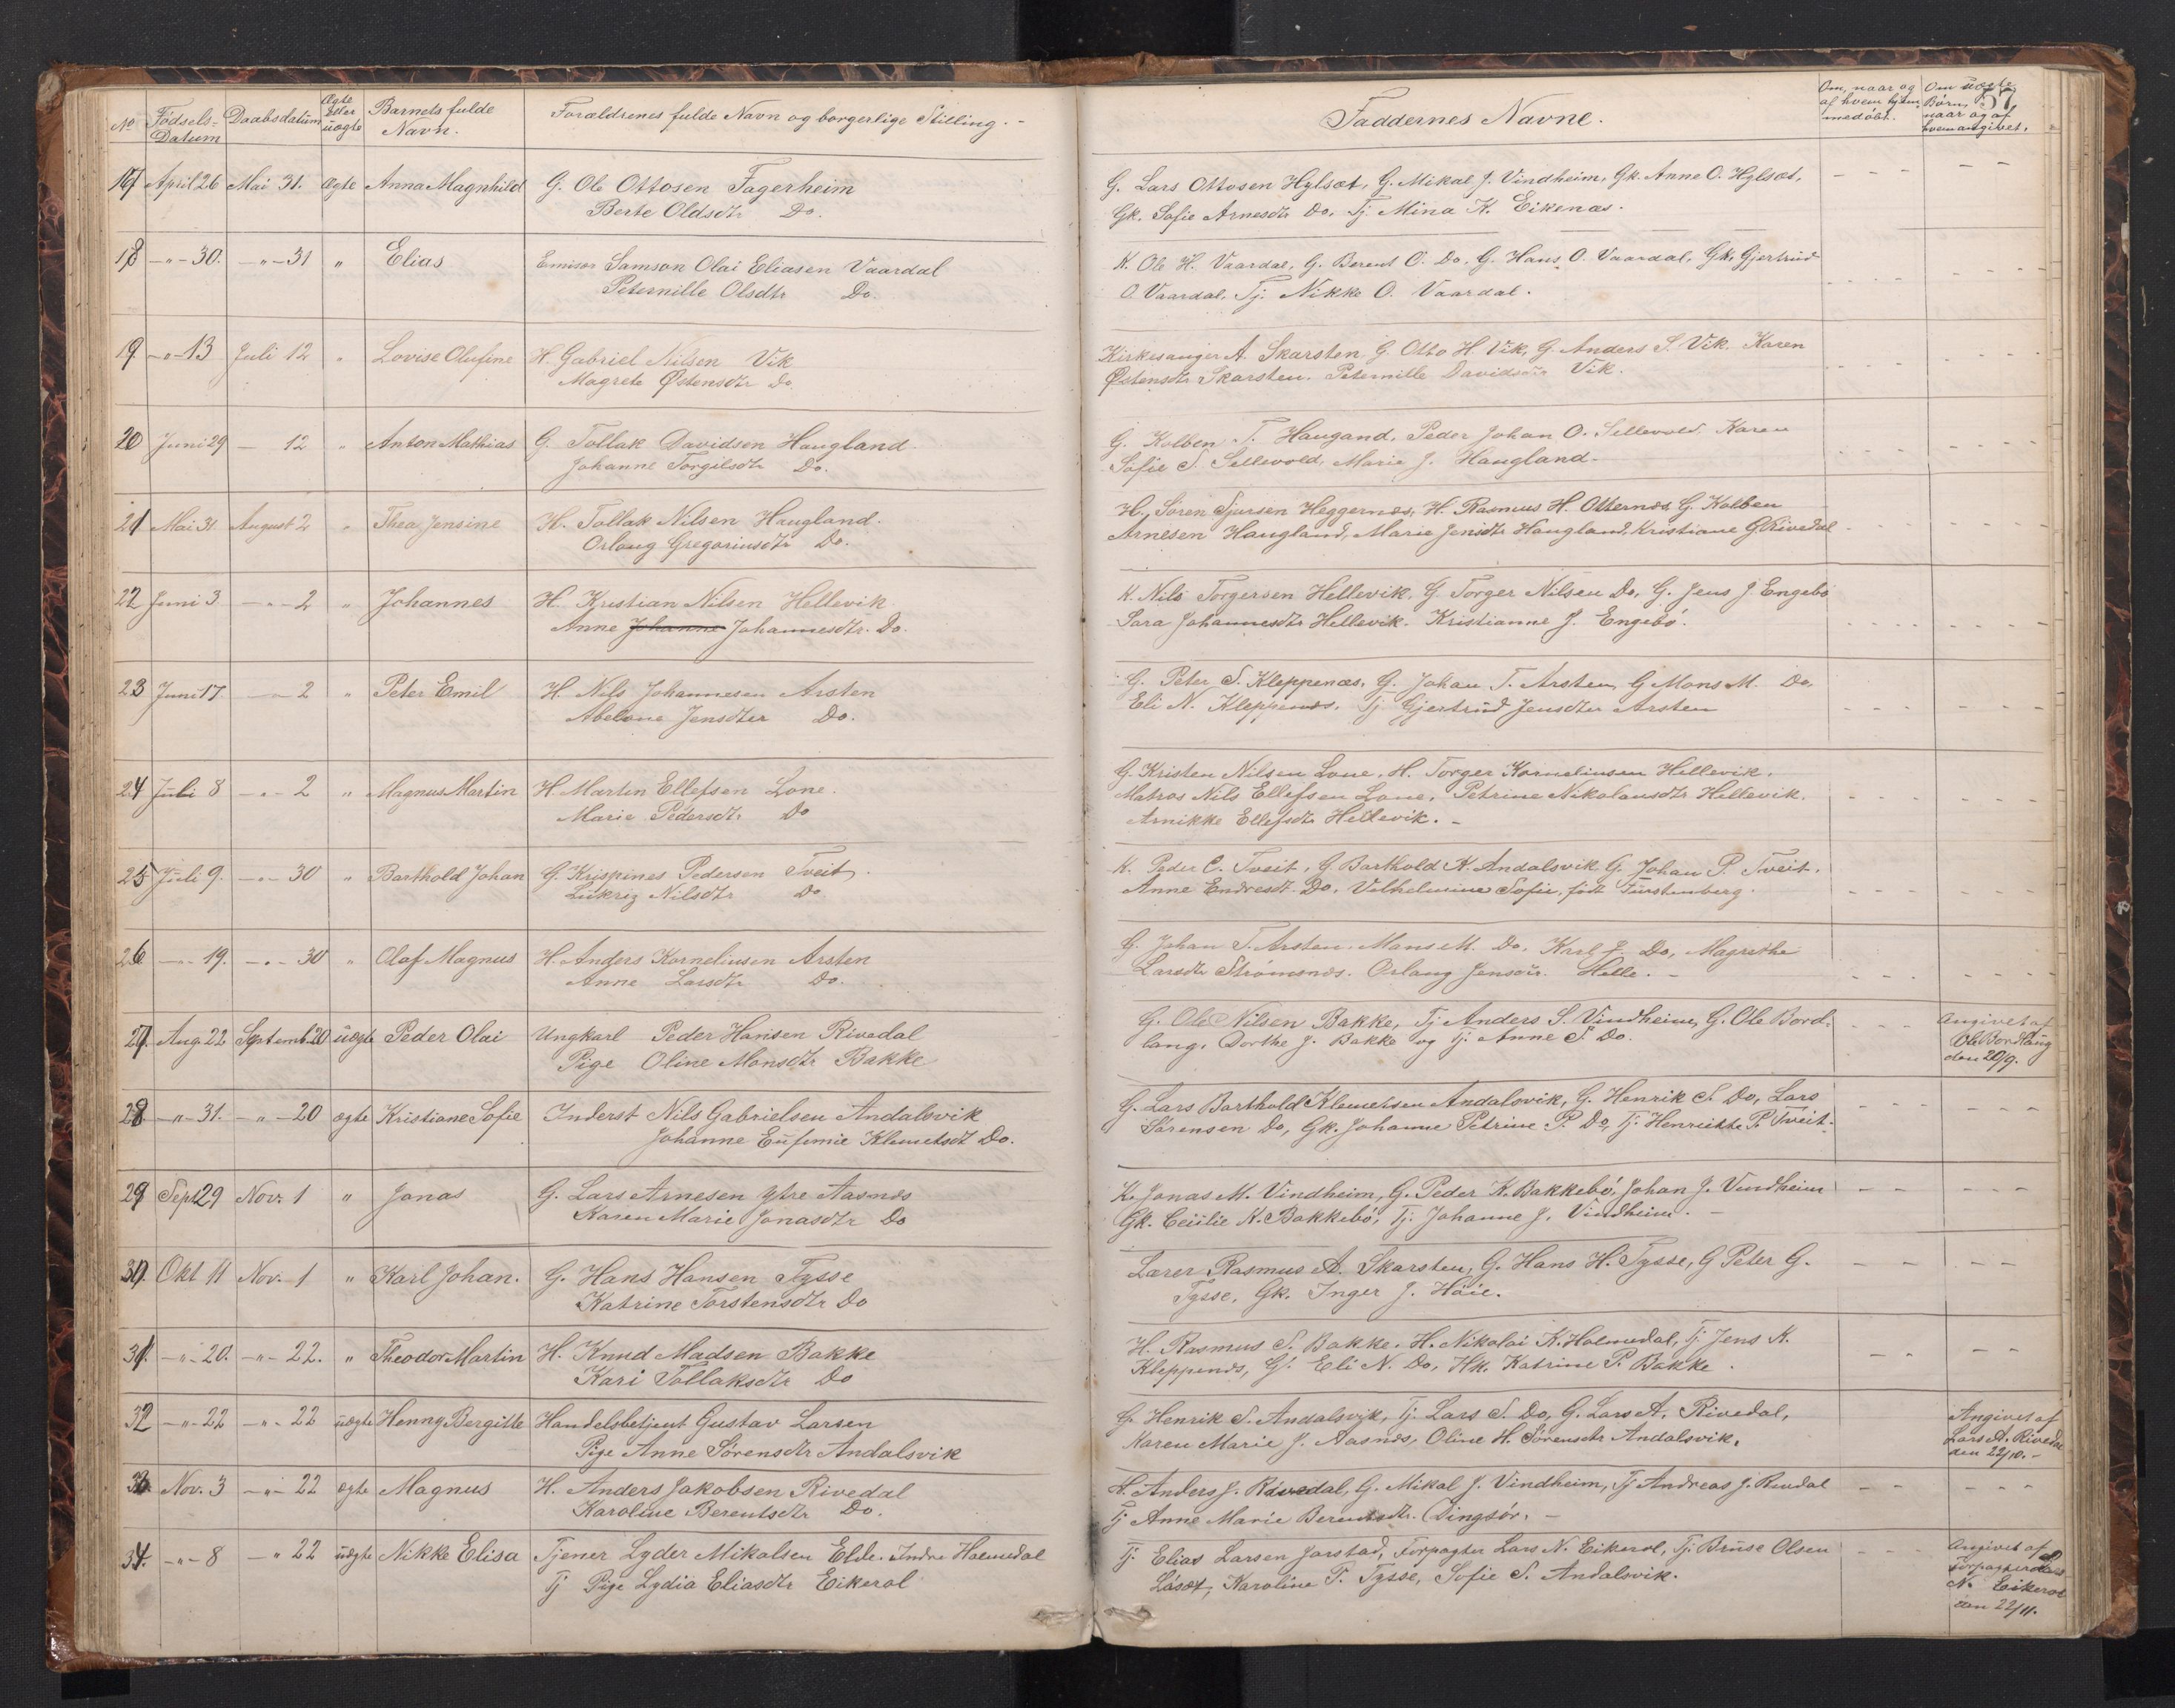 No
Fødsels-Datum
Daabsdatum
Ægte eller uægte
Barnets fulde Navn.
Forældrenes fulde Navn og borgerlige Stilling. -
Faddernes Navne.
Om, naar og af hvem hjemmedøbt.
Om uægte Børn, naar og af hvem angivet.
57
17 April 26 Mai 31. ægte Anna Magnhild G. Ole Ottosen Fagerheim
Berte Oldsdtr Do.
G. Lars Ottosen Hylsæt, G. Mikal J. Vindheim, Gk. Anne O. Hylsæt,
Gk. Sofie Arnesdtr Do. Tj. Mina K. Eikenæs.
18 -"- 30. -"- 31 " Elias Emisær Samson Olai Eliasen Vaardal
Peternille Olsdtr Do.
K. Ole H. Vaardal, G. Berent O. Do. G. Hans O. Vaardal, Gk. Gjertrud
O. Vaardal, Tj. Nikke O. Vaardal.
19 -"- 13 Juli 12 " Lovise Olufine H. Gabriel Nilsen Vik
Magrete Østensdtr Do.
Kirkesanger A. Skarsten, G. Otto H. Vik, G. Anders S. Vik. Karen
Østensdtr Skarsten. Peternille Davidsdtr Vik.
20 Juni 29 - 12 " Anton Mathias G. Tollak Davidsen Haugland
Johanne Torgilsdtr Do.
G. Kolben T. Haugand, Peder Johan O. Sellevold, Karen
Sofie S. Sellevold, Marie J. Haugland -
21 Mai 31 August 2 " Thea Jensine H. Tollak Nilsen Haugland.
Orlaug Gregoriusdtr Do.
H. Søren Sjursen Heggernæs, H. Rasmus H. Otternæs, G. Kolben
Arnesen Haugland, Marie Jensdtr Haugland, Kristiane G Rivedal
22 Juni 3 -"- 2 " Johannes H. Kristian Nilsen Hellevik
Anne Johanne Johannesdtr. Do.
K. Nils Torgersen Hellevik, G. Torger Nilsen Do, G. Jens J. Engebø
Sara Johannesdtr Hellevik. Kristianne J. Engebø.
23 Juni 17 -"- 2 " Peter Emil H. Nils Johannesen Arsten
Abelone Jensdter Do.
G. Peter S. Kleppenæs, G. Johan T. Arsten, G Mons M. Do,
Eli N. Kleppenæs. Tj Gjertrud Jensdter Arsten
24 Juli 8 -"- 2 " Magnus Martin H. Martin Ellefsen Lone.
Marie Pedersdtr Do
G. Kristen Nilsen Lone, H. Torger Korneliusen Hellevik,
Matros Nils Ellefsen Lone, Petrine Nikolausdtr Hellevik.
Arnikke Ellefsdtr Hellevik. -
25 Juli 9. -"- 30 " Barthold Johan G. Krispines Pedersen Tveit.
Lukris Nilsdtr Do
K. Peder C. Tveit, G Barthold K. Andalsvik G. Johan P. Tveit.
Anne Endresdt. Do, Vilhelmine Sofie, født Fürstenberg.
26 -"- 19. -"- 30 " Olaf Magnus H. Anders Korneliusen Arsten
Anne Larsdtr Do.
G. Johan T. Arsten. Mons M. Do. Karl J. Do, Magrethe
Larsdtr Strømsnæs. Orlaug Jensdtr. Helle. -
27. Aug. 22 Septemb 20 uægte Peder Olai Ungkarl Peder Hansen Rivedal
Pige Oline Monsdtr Bakke
G. Ole Nilsen Bakke, Tj Anders S. Vindheim, G. Ole Bord-
lang. Dorthe J. Bakke og Tj. Anne S. Do.
Angivet af
Ole Bordlaug
den 20/9.
28 -"- 31. -"- 20 ægte Kristiane Sofie Inderst Nils Gabrielsen Andalsvik
Johanne Eufemie Klemetsdt Do.
G. Lars Barthold Klemetsen Andalsvik, G. Henrik S. Do, Lars
Sørensen Do, Gk. Johanne Petrine P. Do, Tj. Henriette P. Tveit.
29 Sept 29 Nov. 1 " Jonas G. Lars Arnesen Ytre Aasnæs
Karen Marie Jonasdtr Do
K. Jonas M. Vindheim, G. Peder K. Bakkebø, Johan J. Vindheim
Gk. Ceülie K. Bakkebø, Tj. Johanne J. Vindheim. -
30. Okt 11 Nov. 1 " Karl Johan. G. Hans Hansen Tysse
Katrine Torstensdtr Do
Lærer Rasmus A. Skarsten, G. Hans H. Tysse, G Peter G.
Tysse, Gk. Inger J. Høie.
31. -"- 20. -"- 22. " Theodor Martin H. Knud Madsen Bakke
Kari Tollaksdtr Do
H. Rasmus S. Bakke. H. Nikolai K. Holmedal, Tj. Jens K.
Kleppenæs, G. Eli N. Do, Hk. Katrine P. Bakke.
32 -"- 22 -"- 22 uægte Henny Bergitte Handelsbetjent Gustav Larsen
Pige Anne Sørensdtr Andalsvik
G. Henrik S. Andalsvik, Tj. Lars S. Do, G. Lars A. Rivedal,
Karen Marie J. Aasnæs, Oline H. Sørensdtr Andalsvik.
Angivet af
Lars A. Rivedal
den 22/10. -
33. Nov. 3 -"- 22 ægte Magnus H. Anders Jakobsen Rivedal
Karoline Berentsdtr Do.
H. Anders J. Rivedal, G. Mikal J. Vindheim, Tj Andreas J. Rivedal
Tj Anne Marie Berentsdtr. Dingsør. -
34. -"- 8 -"- 22 uægte Nikke Elisa Tjener Lyder Mikalsen Elde. Indre Holmedal
Tj Pige Lydia Eliasdtr Eikerol
Tj. Elias Larsen Jarstad, Forpagter Lars N. Eikerol, Tj. Bruse Olsen
Låsæt, Karoline T. Tysse, Sofie S. Andalsvik.
Angivet af
Forpagter Lars
N. Eikerol
den 22/11.